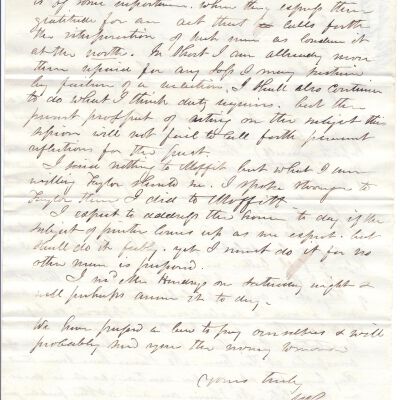 is of some importance. when they express their
gratitude for an act that calls forth
the interposition of such men as conduct it
at the north. In short I am already more
than repaid for any loss I may sustain
by failure of a reelection. I shall also continue
to do what I think duty requires. but the
present prospect of acting on the subject this
session will not fail to call forth
reflections for the past.
I said nothing to Moffitt but what I am
willing Taylor should see. I spoke stronger to
Taylor than I did to Moffitt
I expect to address the house to day, if the
subject of printer comes up as we expect. but
shall do it feebly. yet I must do it for no
other man is prepared.
I recd Mr on Saturday night &
will perhaps answer it to day.
We have passed a law to pay ourselves & will
probably send you the money tomorrow
Yours truly